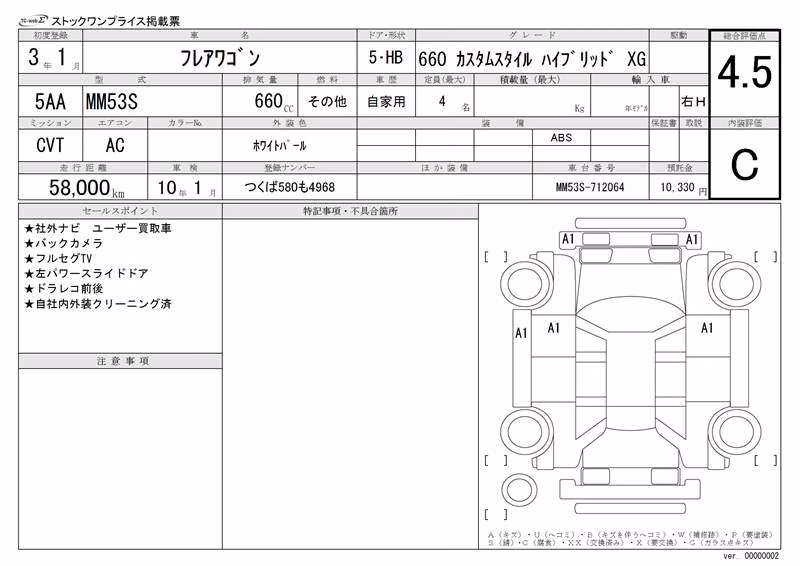 TC-webΣ ストックワンプライス掲載票
初度登録 車 名 ドア・形状 グ レ ー ド 駆動 総合評価点
3年 1月 フレアワゴン 5・HB 660 カスタムスタイル ハイブリッド XG 4.5
型 式 排 気 量 燃 料 車 歴 定員(最大) 積載量(最大) 輸 入 車
5AA MM53S 660CC その他 自家用 4 名 Kg 年モデル 右H
ミッション エアコン カラーNo. 外 装 色 装 備 保証書 取説 内装評価
CVT AC ホワイトパール ABS C
走 行 距 離 車 検 登録ナンバー ほ か 装 備 車 台 番 号 預託金
58,000km 10年 1月 つくば580も4968 MM53S-712064 10,330 円
セールスポイント
★社外ナビ ユーザー買取車
★バックカメラ
★フルセグTV
★左パワースライドドア
★ドラレコ前後
★自社内外装クリーニング済
注 意 事 項
特記事項・不具合箇所
A1 A1
[ ] [ ]
A1 A1 A1
[ ] [ ]
[ ]
A(キズ)・U(ヘコミ)・B(キズを伴うヘコミ)・W(補修跡)・P(要塗装)
S(錆)・C(腐食)・XX(交換済み)・X(要交換)・G(ガラス点キズ)
ver. 00000002